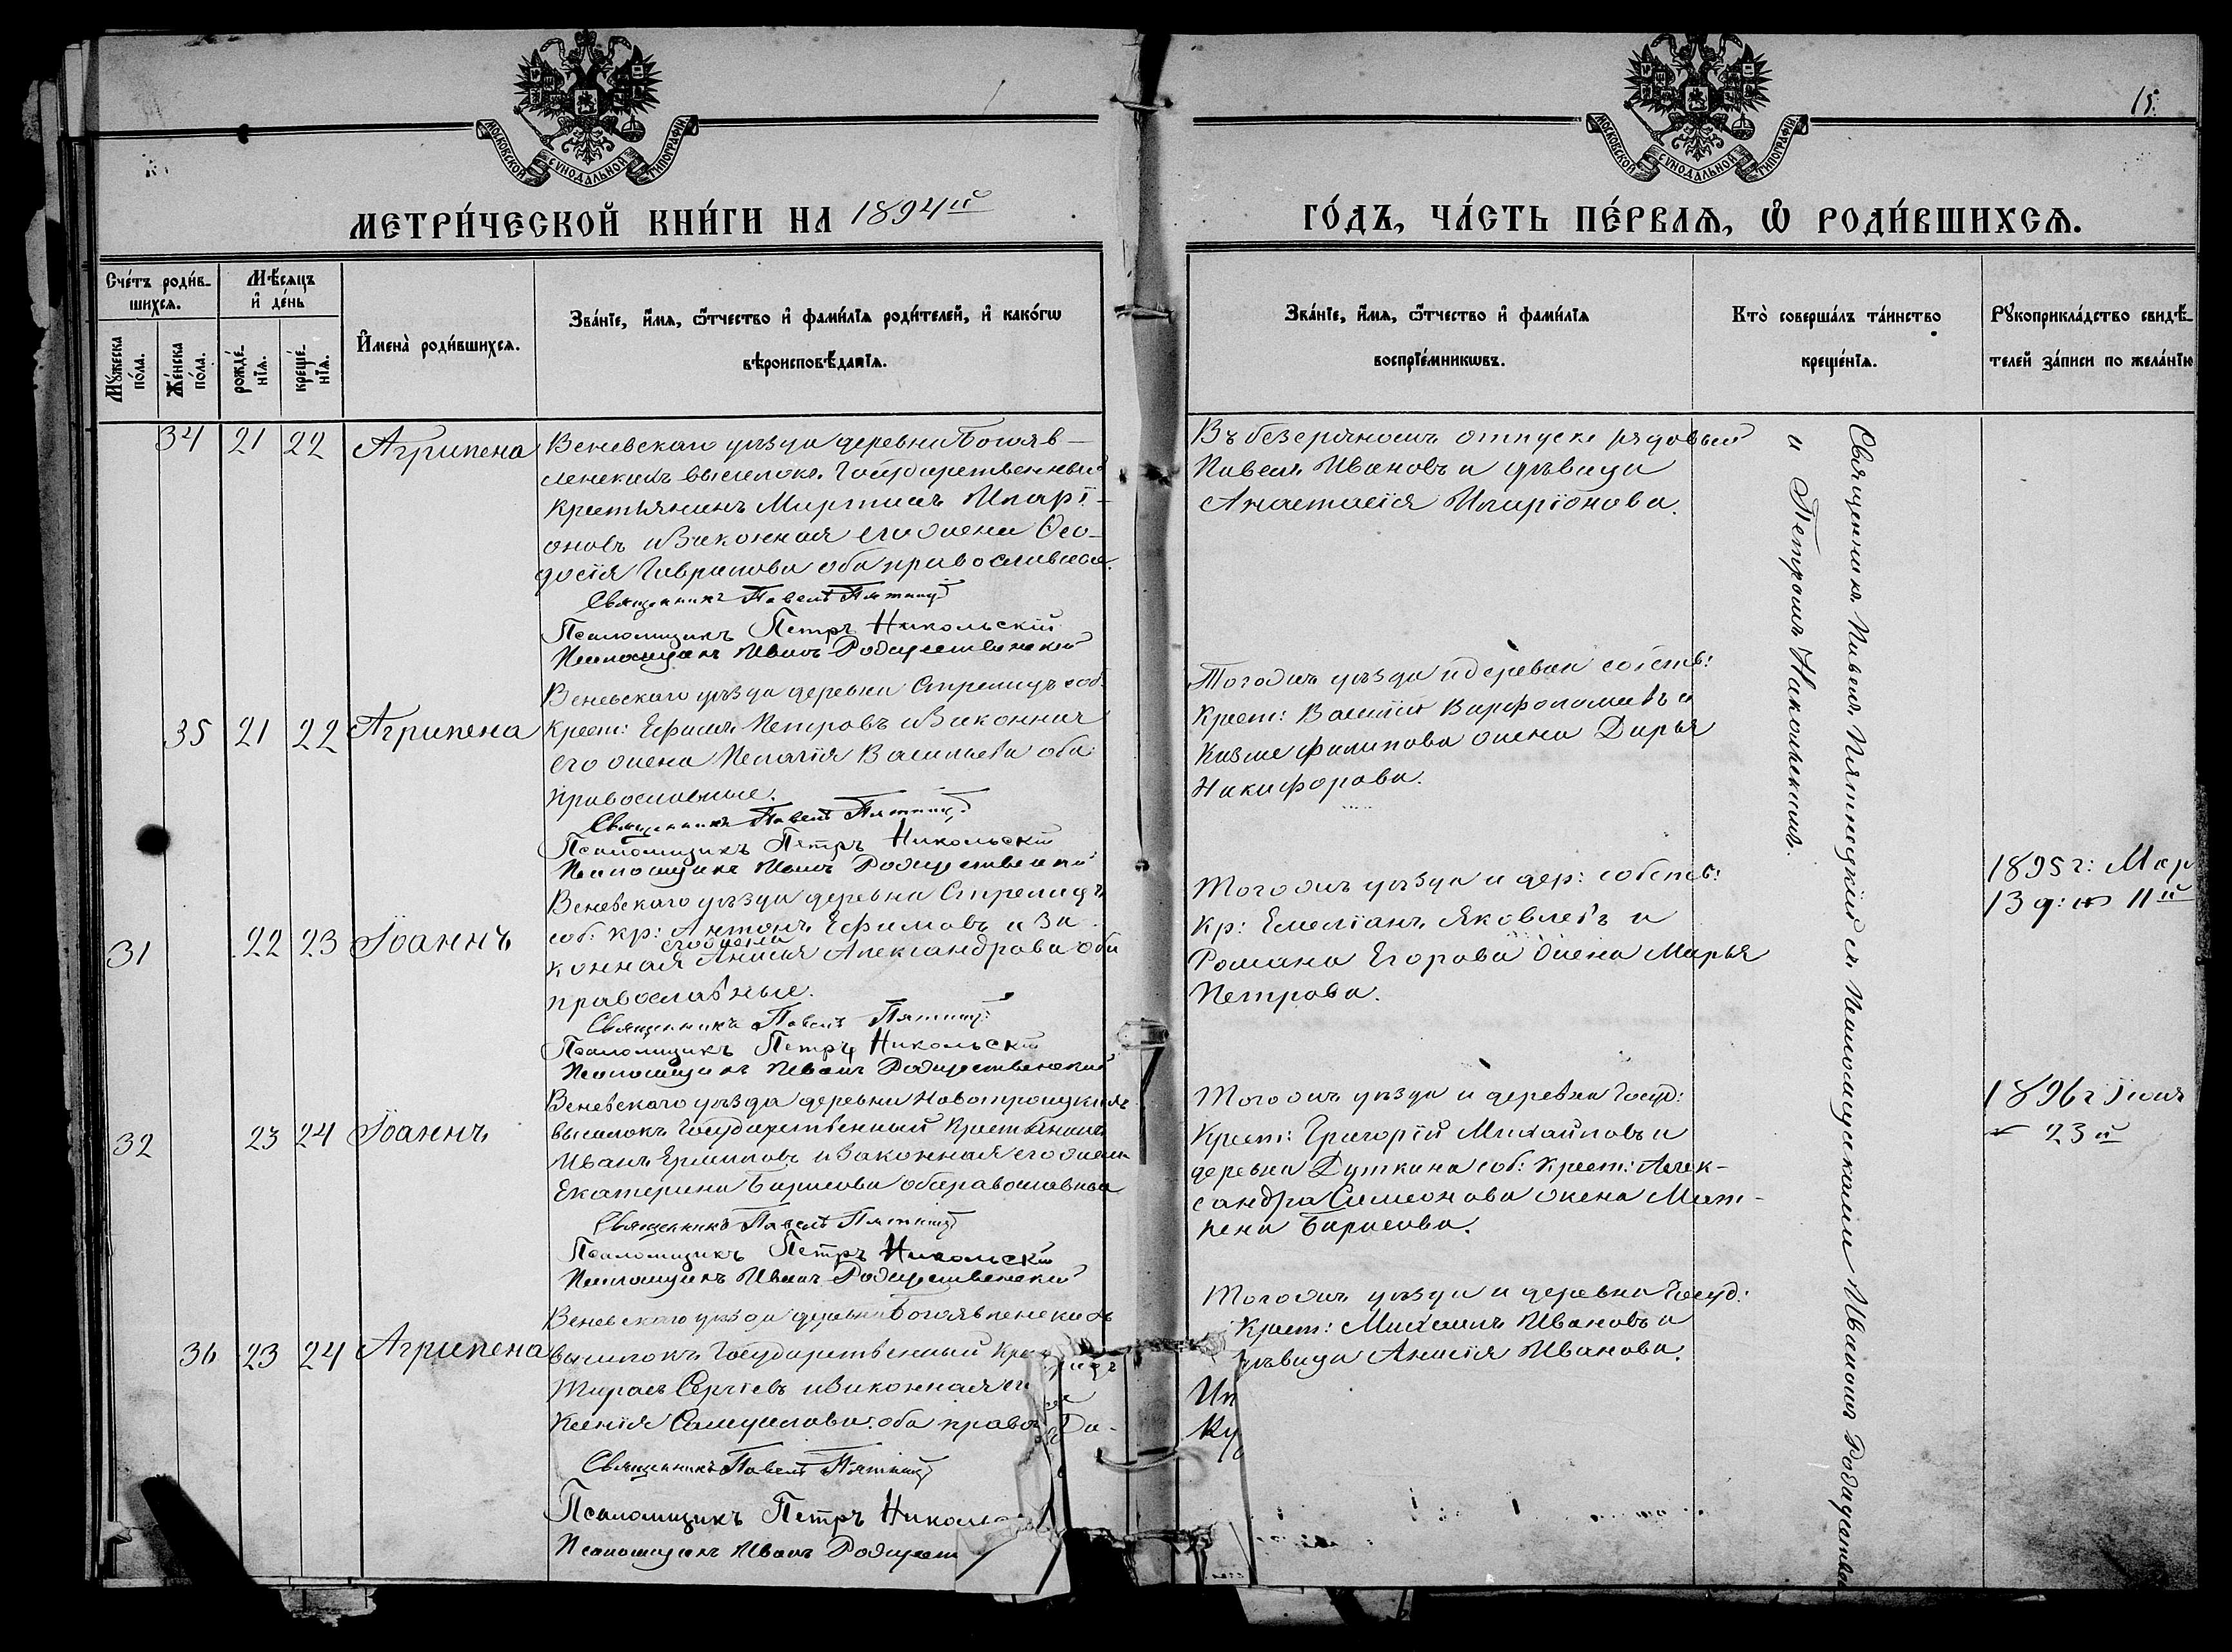 15.
МОСКОВСКОЙ СѴНОДАЛЬНОЙ ТИПОГРАФІИ
МОСКОВСКОЙ СѴНОДАЛЬНОЙ ТИПОГРАФІИ
МЕТРИ́ЧЕСКОЙ КНИ́ГИ НА 1894й
ГО́ДЪ, ЧА́СТЬ ПЕ́РВАѦ, Ѡ҆ РОДИ́ВШИХСѦ.
Сче́тъ роди́в-
шихсѧ.
Мꙋ́жеска
по́ла.
Же́нска
по́ла.
Мѣ́сѧцъ
и҆ де́нь
рожде́-
нїѧ.
креще́-
нїѧ.
И҆мена̀ роди́вшихсѧ.
Зва́нїе, и҆́мѧ, ѻ҆́тчество и҆ фами́лїѧ роди́телей, и҆ како́гѡ
вѣроисповѣ́данїѧ.
Зва́нїе, и҆́мѧ, ѻ҆́тчество и҆ фами́лїѧ
воспрїе́мникѡвъ.
Кто̀ соверша́лъ та́инство
креще́нїѧ.
Рꙋкоприкла́дство свидѣ́-
телей за́писи по жела́нїю
34 21 22 Агрипена
Веневскаго уѣзда деревни Богояв-
ленскихъ выселокъ Государственный
Крестьянинъ Мартинъ Иларі-
оновъ и Законная его жена Ѳео-
досія Гаврилова оба православные.
Священникъ Павелъ Пятниц
Псаломщикъ Петръ Никольскій
Псаломщикъ Иванъ Рождественскій
Въ безсрочномъ отпуске рядовый
Павелъ Ивановъ и дѣвица
Анастасія Иларіонова.
35 21 22 Агрипена
Веневскаго уѣзда деревни Стрелицъ соб:
Крест: Ефимъ Петровъ и Законная
его жена Пелагія Васильева оба
православные.
Священникъ Павелъ Пятниц
Псаломщикъ Петръ Никольскій
Псаломщикъ Иванъ Рождественскій
Тогожъ уѣзда и деревни собств:
Крест: Василій Варфоломеевъ и
Казме Филипова жена Дарья
Никифорова.
31 22 23 Іоаннъ
Веневскаго уѣзда деревни Стрелицъ
соб: кр: Антонъ Ефимовъ и За-
его жена
конная Анисія Александрова оба
православные.
Священникъ Павелъ Пятниц
Псаломщикъ Петръ Никольскій
Псаломщикъ Иванъ Рождественскій
Тогожъ уѣзда и дер: собств:
Кр: Емеліанъ Яковлевъ и
Романа Егорова жена Марья
Петрова.
1895 г: Мар
13 д: 11й
32 23 24 Іоаннъ
Веневскаго уѣзда деревни Новотроицкихъ
выселокъ Государственный Крестьянинъ
Иванъ Ермиловъ и Законная его жена
Екатерина Борисова оба православные
Священникъ Павелъ Пятниц
Псаломщикъ Петръ Никольскій
Псаломщикъ Иванъ Рождественскій
Тогожъ уѣзда и деревни Госуд:
Крест: Григорій Михайловъ и
деревни Дуткина соб: Крест: Алек-
сандра Симеонова жена Мат-
рена Борисова.
1896 г
23й
36 23 24 Агрипена
Веневскаго уѣзда деревни Богоявленскихъ
выселокъ Государственный Крес
Сергіевъ и Законная ег
Ксенія Самуилова оба право
Священникъ Павелъ Пятниц
Псаломщикъ Петръ Никольс
Псаломщикъ Иванъ Рождест
Тогожъ уѣзда и деревни Госуд:
Крест: Михаилъ Ивановъ и
дѣвица Анисія Иванова.
Ип
Ку
Священникъ Павелъ Пятницкій съ Псаломщиками Иваномъ Рождествен
и Петромъ Никольскимъ.